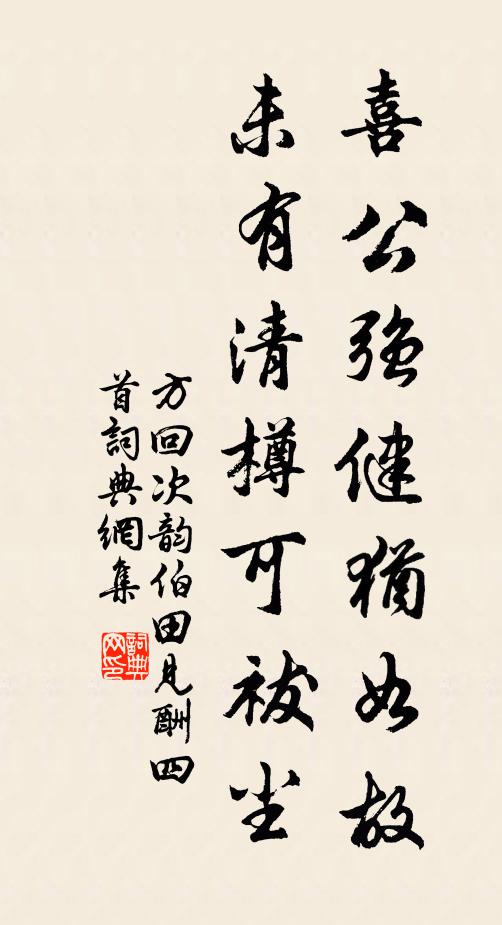 喜公強健猶如故
未有清樽可祓塵
方回次韵伯田見酬四
首詞典網集
詞典網印